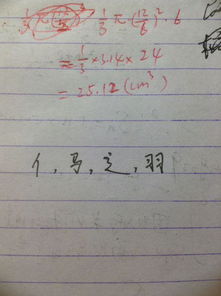 1/3 π (12/6)² · 6
≈ 1/3 × 3.14 × 24
= 25.12 (cm³)
亻, 马, 辶, 羽